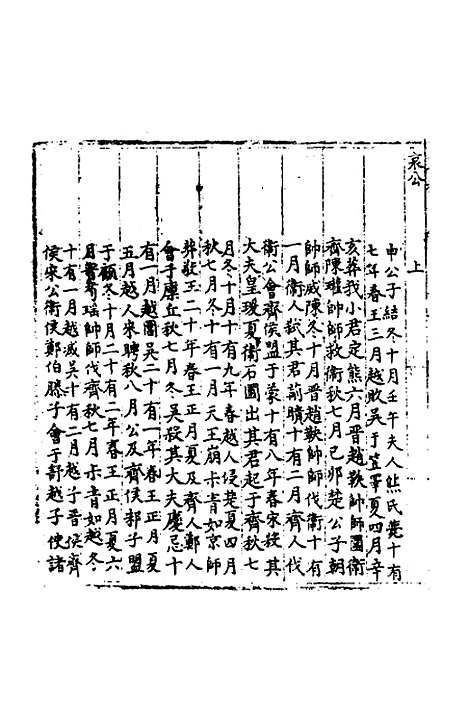 哀公
上
申公子結冬十月壬午夫人熊氏薨十有
七年春王三月越敗吳于笠澤夏四月辛
亥葬我小君定熊六月晉趙鞅帥師圍衛
齊陳瓘帥師救衛秋七月己卯楚公子朝
帥師滅陳冬十月晉趙鞅帥師伐衛十有
一月衛人弑其君蒯聵十有二月齊人伐
衛公會齊侯盟于蒙十有八年春宋殺其
大夫皇瑗夏衛石圃出其君起于齊秋七
月冬十月十有九年春越人侵楚夏四月
秋七月冬十有一月天王崩叔青如京師
葬敬王二十年春王正月夏及齊人鄭人
會于廩丘秋七月冬吳殺其大夫慶忌十
有一月越圍吳二十有一年春王正月夏
五月越人來聘秋八月公及齊侯邾子盟
于顧冬十月二十有二年春王正月夏六
月晉荀瑤帥師伐齊秋七月叔青如越冬
十有一月越滅吳十有二月越子晉侯齊
侯宋公衛侯鄭伯滕子會于舒越子使諸